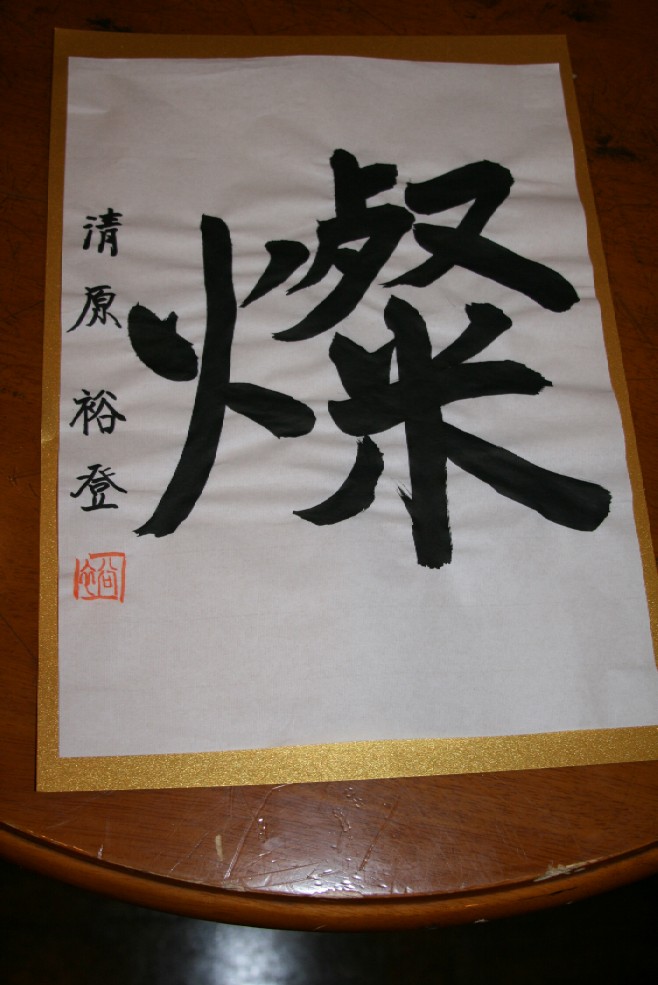 燦
清原裕登
裕